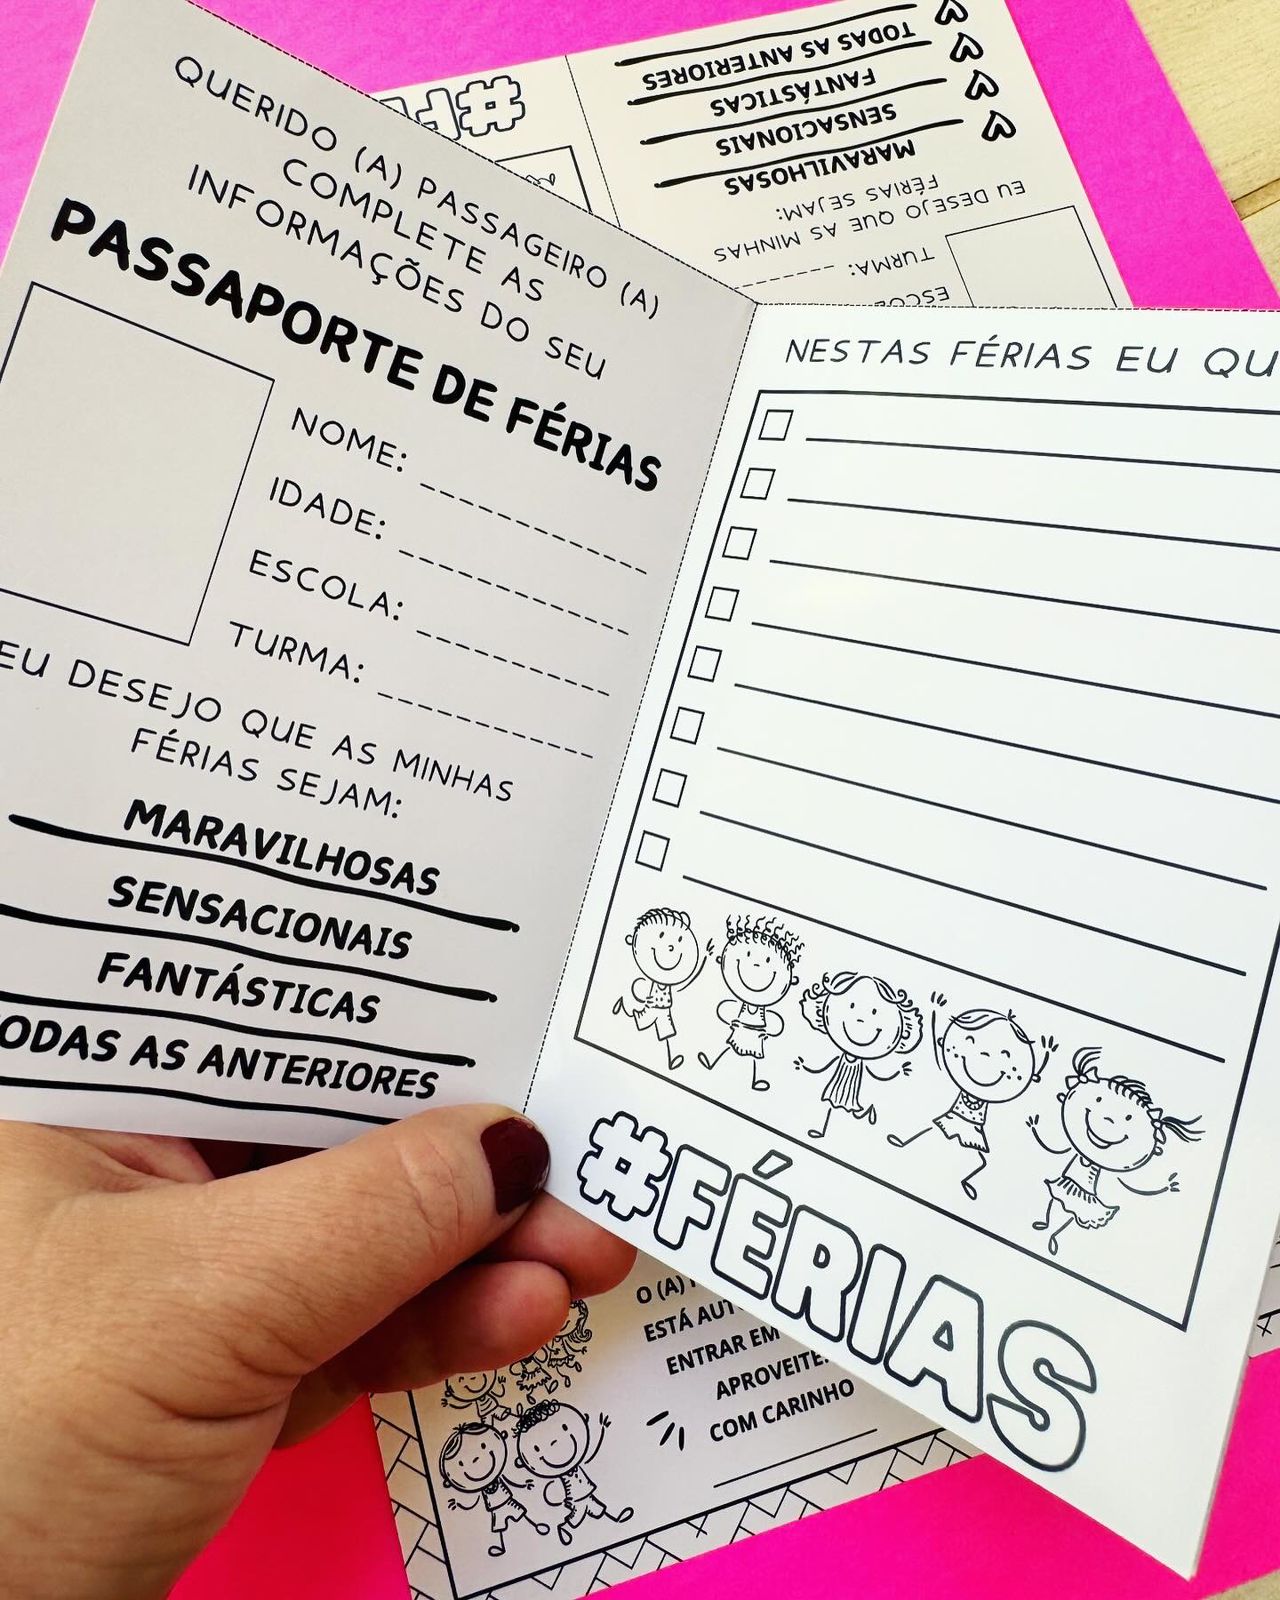 QUERIDO (A) PASSAGEIRO (A)
COMPLETE AS
INFORMAÇÕES DO SEU
PASSAPORTE DE FÉRIAS
NOME:
IDADE:
ESCOLA:
TURMA:
EU DESEJO QUE AS MINHAS
FÉRIAS SEJAM:
MARAVILHOSAS
SENSACIONAIS
FANTÁSTICAS
TODAS AS ANTERIORES
NESTAS FÉRIAS EU
#FÉRIAS
TURMA:
EU DESEJO QUE AS MINHAS
FÉRIAS SEJAM:
MARAVILHOSAS
SENSACIONAIS
FANTÁSTICAS
TODAS AS ANTERIORES
O (A)
ESTÁ
ENTRAR EM
COM CARINHO